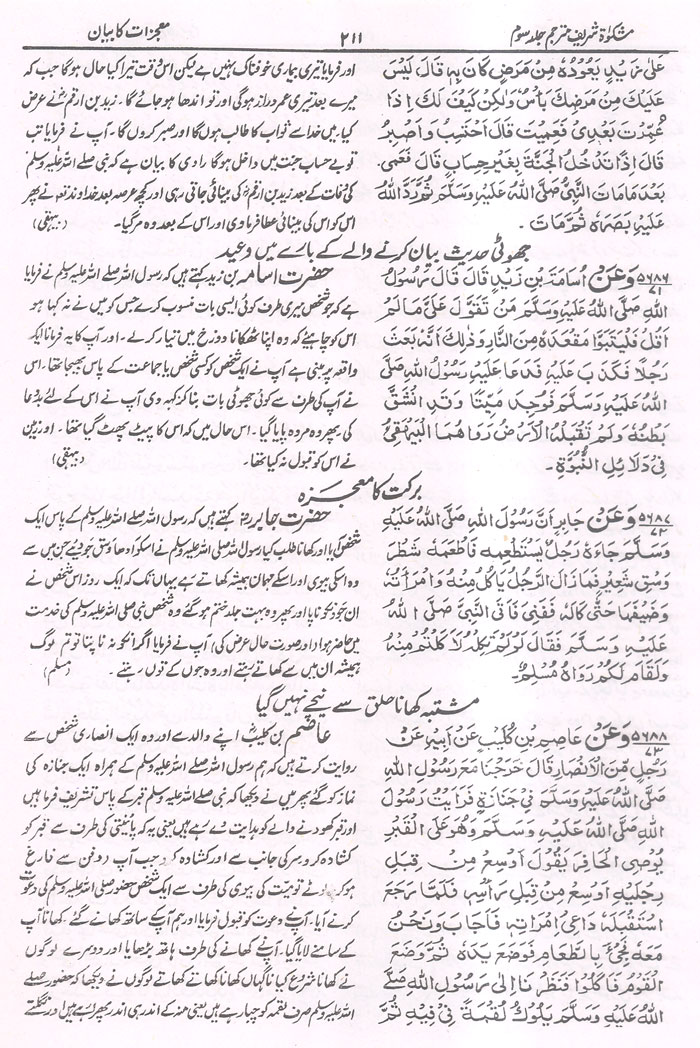 مشکوٰۃ شریف مترجم جلد سوم
۲۱۱
معجزات کا بیان
عَلٰی زَيْدٍ يَعُوْدُهٗ مِنْ مَرَضٍ كَانَ بِهٖ قَالَ لَيْسَ
عَلَيْكَ مِنْ مَرَضِكَ بَأْسٌ وَلٰكِنْ كَيْفَ لَكَ اِذَا
عُمِّرْتَ بَعْدِيْ فَعَمِيْتَ قَالَ اَحْتَسِبُ وَاَصْبِرُ
قَالَ اِذًا تَدْخُلُ الْجَنَّةَ بِغَيْرِ حِسَابٍ قَالَ فَعَمِيَ
بَعْدَ مَا مَاتَ النَّبِيُّ صَلَّى اللهُ عَلَيْهِ وَسَلَّمَ ثُمَّ رَدَّ اللهُ
عَلَيْهِ بَصَرَهٗ ثُمَّ مَاتَ ۔
اور فرمایا تیری بیماری خوفناک نہیں ہے لیکن اس وقت تیرا کیا حال ہوگا جب کہ
میرے بعد تیری عمر دراز ہوگی اور تو اندھا ہو جائے گا۔ زید بن ارقمؓ نے عرض
کیا۔ میں خدا سے ثواب کا طالب ہوں گا اور صبر کروں گا۔ آپ نے فرمایا تب
تو بے حساب جنت میں داخل ہوگا راوی کا بیان ہے کہ نبی صلے اللہ علیہ وسلم
کی وفات کے بعد زید بن ارقمؓ کی بینائی جاتی رہی اور کچھ عرصہ بعد خداوند نے پھر
اس کو اس کی بینائی عطا فرما دی اور اس کے بعد وہ مر گیا۔ (بیہقی)
جھوٹی حدیث بیان کرنے والے کے بارے میں وعید
۵۶۸۶ ۷۱ وَعَنْ اُسَامَةَ بْنِ زَيْدٍ قَالَ قَالَ رَسُوْلُ
اللهِ صَلَّى اللهُ عَلَيْهِ وَسَلَّمَ مَنْ تَقَوَّلَ عَلَيَّ مَا لَمْ
اَقُلْ فَلْيَتَبَوَّأْ مَقْعَدَهٗ مِنَ النَّارِ وَذٰلِكَ اَنَّهٗ بَعَثَ
رَجُلًا فَكَذَبَ عَلَيْهِ فَدَعَا عَلَيْهِ رَسُوْلُ اللهِ صَلَّى
اللهُ عَلَيْهِ وَسَلَّمَ فَوُجِدَ مَيِّتًا وَقَدِ انْشَقَّ
بَطْنُهٗ وَلَمْ تَقْبَلْهُ الْاَرْضُ رَوَاهُمَا الْبَيْهَقِيُّ
فِيْ دَلَائِلِ النُّبُوَّةِ۔
حضرت اسامہ بن زید کہتے ہیں کہ رسول اللہ صلے اللہ علیہ وسلم نے فرمایا
ہے کہ جو شخص میری طرف کوئی ایسی بات منسوب کرے جس کو میں نے نہ کہا ہو
اس کو چاہئیے کہ وہ اپنا ٹھکانا دوزخ میں تیار کرلے۔ اور آپ کا یہ فرمانا ایک
واقعہ پر مبنی ہے آپ نے ایک شخص کو کسی شخص یا جماعت کے پاس بھیجا تھا۔ اس
نے آپ کی طرف سے کوئی جھوٹی بات بنا کر کہہ دی آپ نے اس کے لئے بددعا
کی پھر وہ مردہ پایا گیا۔ اس حال میں کہ اس کا پیٹ پھٹ گیا تھا۔ اور زمین
نے اس کو قبول نہ کیا تھا۔ (بیہقی)
برکت کا معجزہ
۵۶۸۷ ۷۲ وَعَنْ جَابِرٍ اَنَّ رَسُوْلَ اللهِ صَلَّى اللهُ عَلَيْهِ
وَسَلَّمَ جَاءَهٗ رَجُلٌ يَسْتَطْعِمُهٗ فَاَطْعَمَهٗ شَطْرَ
وَسْقِ شَعِيْرٍ فَمَا زَالَ الرَّجُلُ يَأْكُلُ مِنْهُ وَامْرَاَتُهٗ
وَضَيْفُهُمَا حَتّٰى كَالَهٗ فَفَنِيَ فَاَتَى النَّبِيَّ صَلَّى اللهُ
عَلَيْهِ وَسَلَّمَ فَقَالَ لَوْ لَمْ تَكِلْهُ لَاَكَلْتُمْ مِنْهُ
وَلَقَامَ لَكُمْ رَوَاهُ مُسْلِمٌ۔
حضرت جابرؓ کہتے ہیں کہ رسول اللہ صلے اللہ علیہ وسلم کے پاس ایک
شخص آیا اور کھانا طلب کیا رسول اللہ صلی اللہ علیہ وسلم نے اسکو آدھا وسق جو دیئے جن میں سے
وہ اسکی بیوی اور اسکے مہمان ہمیشہ کھاتے رہے یہاں تک کہ ایک روز اس شخص نے
ان جو کو ناپا اور پھر وہ بہت جلد ختم ہو گئے وہ شخص نبی صلی اللہ علیہ وسلم کی خدمت
میں حاضر ہوا اور صورت حال عرض کی آپ نے فرمایا اگر انکو نہ ناپتا تو تم لوگ
ہمیشہ ان میں سے کھاتے رہتے اور وہ جوں کے توں رہتے۔ (مسلم)
مشتبہ کھانا حلق سے نیچے نہیں گیا
۵۶۸۸ ۷۳ وَعَنْ عَاصِمِ بْنِ كُلَيْبٍ عَنْ اَبِيْهِ عَنْ
رَجُلٍ مِّنَ الْاَنْصَارِ قَالَ خَرَجْنَا مَعَ رَسُوْلِ اللهِ
صَلَّى اللهُ عَلَيْهِ وَسَلَّمَ فِيْ جَنَازَةٍ فَرَاَيْتُ رَسُوْلَ
اللهِ صَلَّى اللهُ عَلَيْهِ وَسَلَّمَ وَهُوَ عَلَى الْقَبْرِ
يُوْصِى الْحَافِرَ يَقُوْلُ اَوْسِعْ مِنْ قِبَلِ
رِجْلَيْهِ اَوْسِعْ مِنْ قِبَلِ رَأْسِهٖ فَلَمَّا رَجَعَ
اسْتَقْبَلَهٗ دَاعِيْ امْرَاَتِهٖ فَاَجَابَ وَنَحْنُ
مَعَهٗ فَجِيْئَ بِالطَّعَامِ فَوَضَعَ يَدَهٗ ثُمَّ وَضَعَ
الْقَوْمُ فَاَكَلُوْا فَنَظَرْنَا اِلٰى رَسُوْلِ اللهِ صَلَّى
اللهُ عَلَيْهِ وَسَلَّمَ يَلُوْكُ لُقْمَةً فِيْ فِيْهِ ثُمَّ
عاصم بن کلیب اپنے والد سے اور وہ ایک انصاری شخص سے
روایت کرتے ہیں کہ ہم رسول اللہ صلے اللہ علیہ وسلم کے ہمراہ ایک جنازہ کی
نماز کو گئے پھر میں نے دیکھا کہ نبی صلے اللہ علیہ وسلم قبر کے پاس تشریف فرما ہیں
اور قبر کھودنے والے کو ہدایت دے رہے ہیں یعنی یہ کہ پائنتی کی طرف سے قبر کو
کشادہ کرو سر کی جانب سے اور کشادہ کرو جب آپ دفن سے فارغ
ہو کر لوٹے تو میت کی بیوی کی طرف سے ایک شخص حضور صلی اللہ علیہ وسلم کی دعوت
کرنے آیا۔ آپ نے دعوت کو قبول فرمایا اور ہم آپکے ساتھ کھانے گئے کھانا آپ
کے سامنے لایا گیا۔ آپ نے کھانے کی طرف ہاتھ بڑھایا اور دوسرے لوگوں
نے کھانا شروع کیا ناگہاں کھانا کھاتے کھاتے لوگوں نے دیکھا کہ حضور صلے
اللہ علیہ وسلم صرف لقمہ کو چبا رہے ہیں یعنی منہ کے اندر ہی اندر پھرا رہے ہیں اور نگلتے